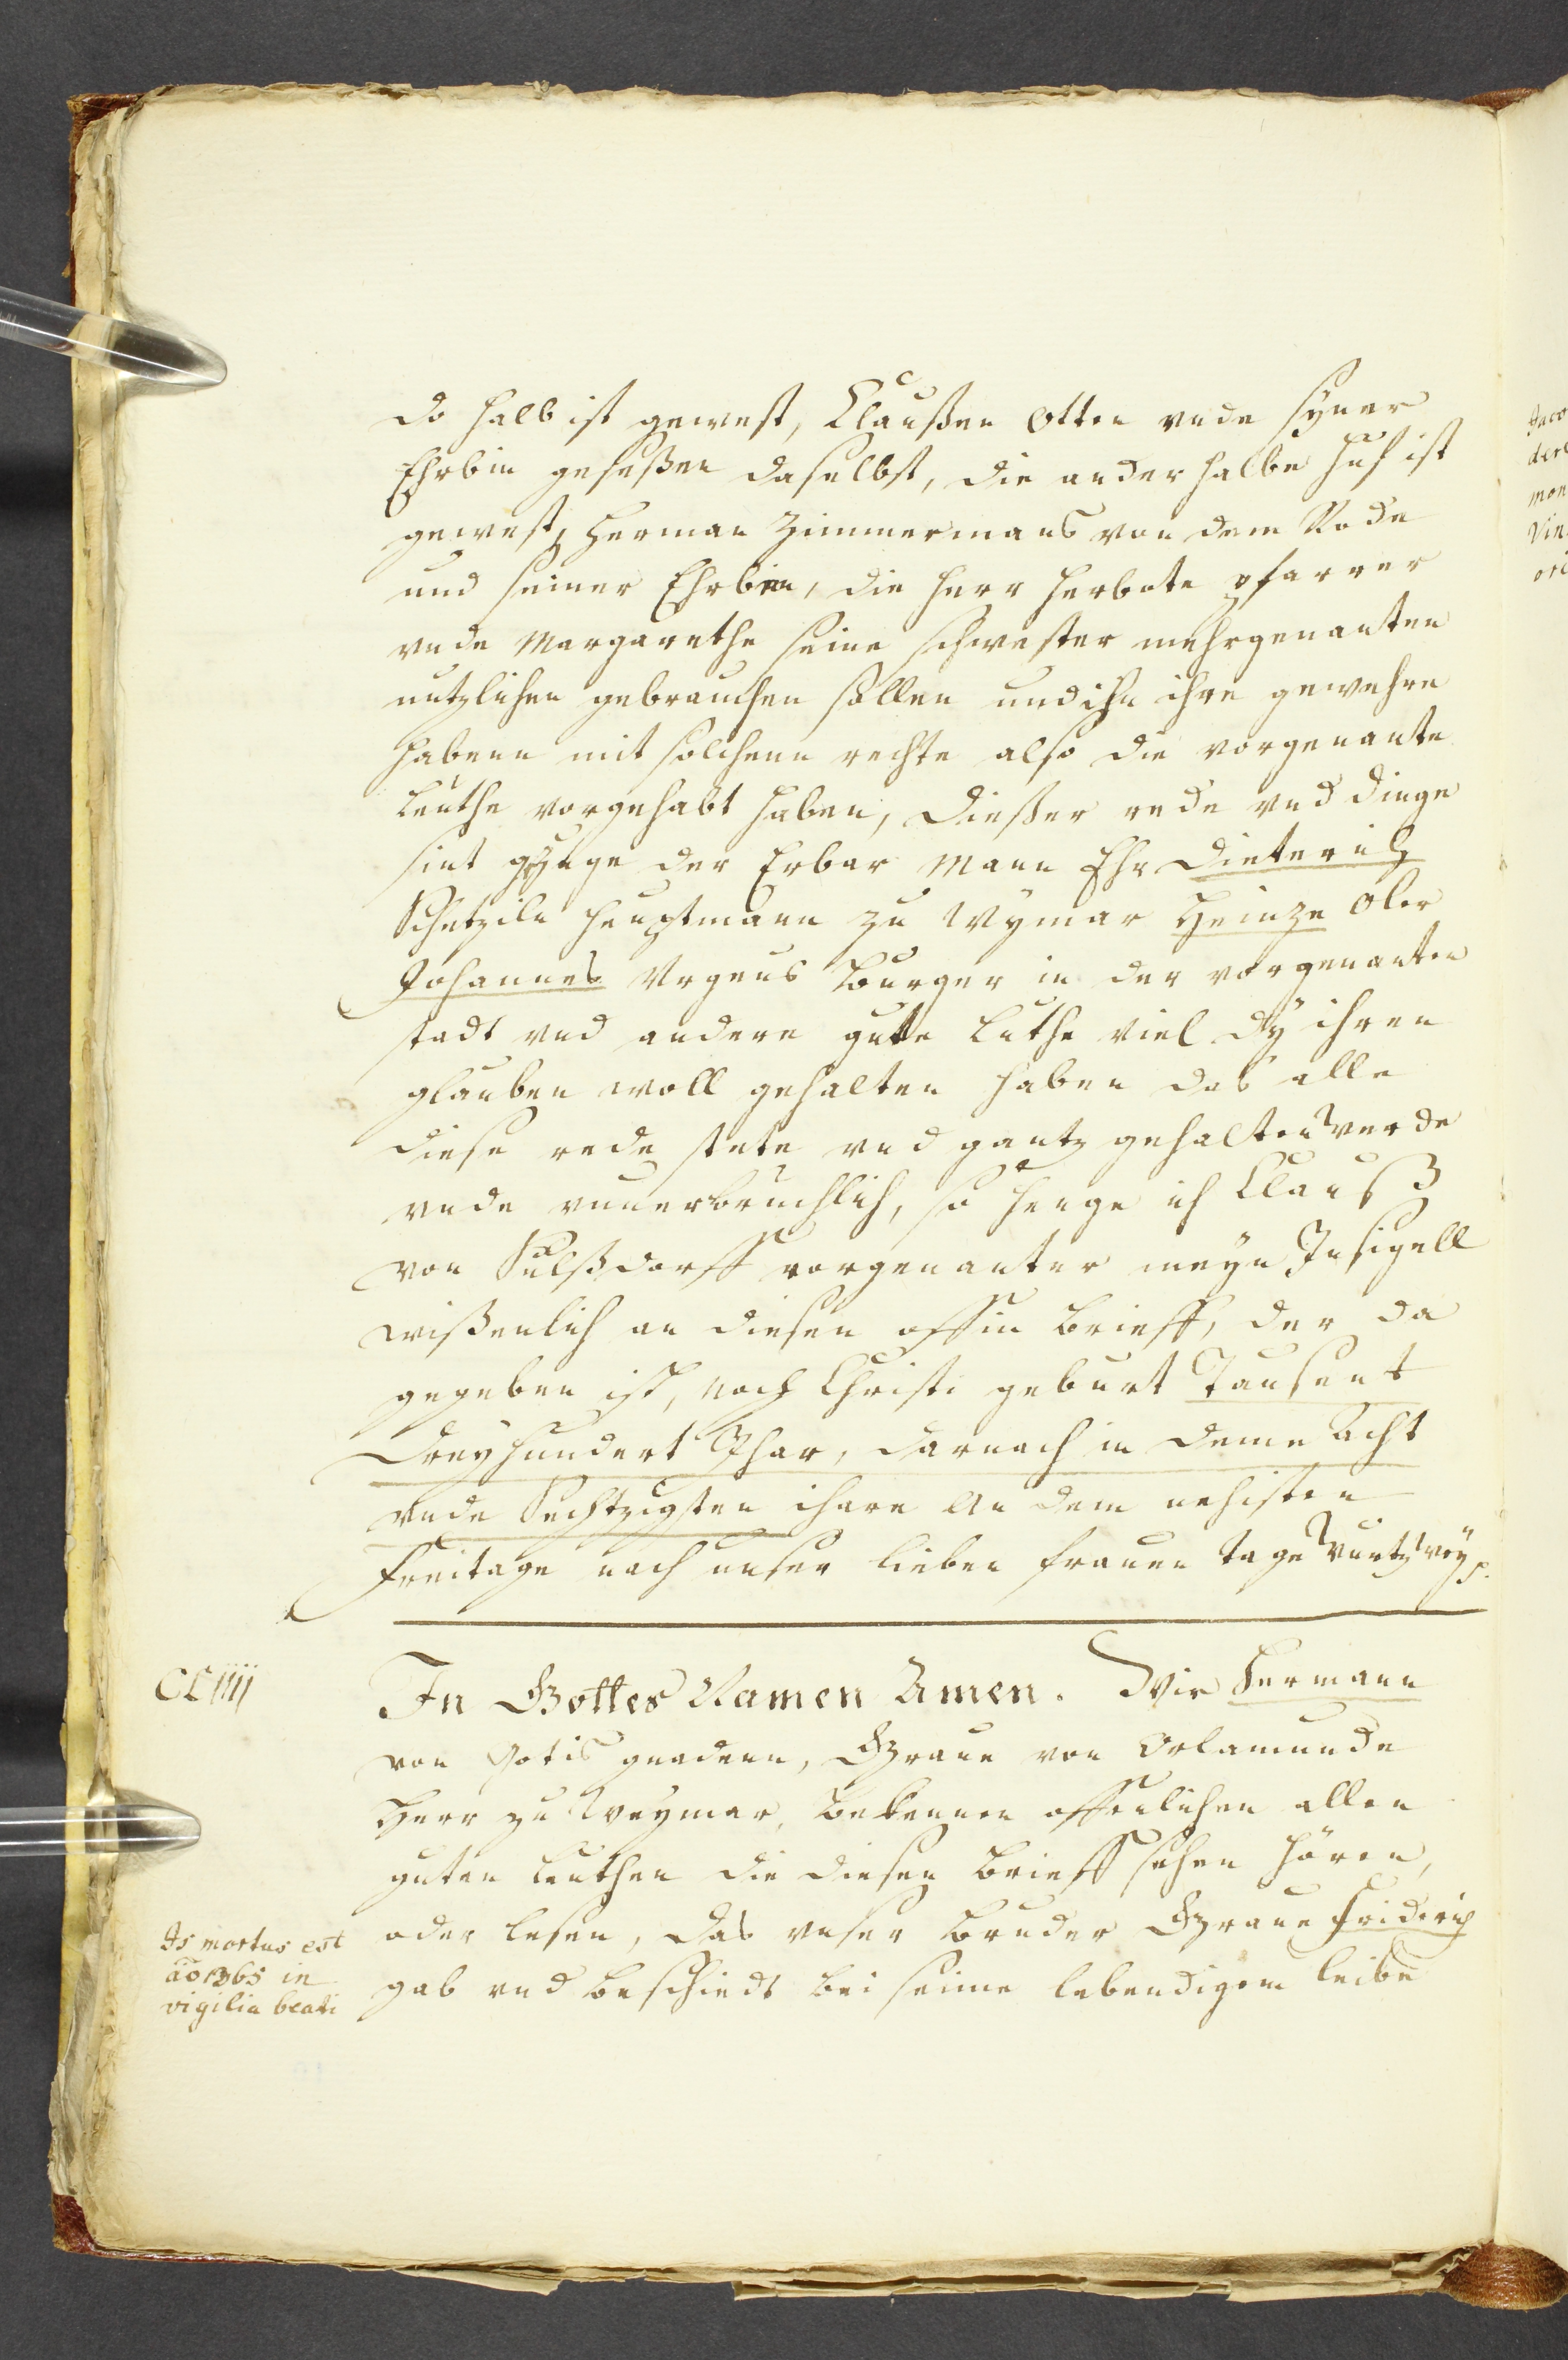 do halb ist gewest, Claußen Otten vnde syner
Ehrbin geseßen daselbst, die ander halbe huf ist
gewest, Herman Zimmermans von dem Rode
und seiner Ehrbin, die Herr Herbote pfarrer
vnde Margarethe seine schwester mehrgenanten
nutzlichen gebrauchen sollen und ihn ihre gewehre
habenn mit solchenn rechte also die vorgenante
Leuthe vorgehabt haben, Dießer rede vnd dinge
sint gezuge der Erbar Mann Ehr Dieterich
Schetzile Heuptmann zu Wymar Heinze Oler
Johannes Vrgeus Bourger in der vorgenanten
stadt vnd andere gute Luthe viel dy ihren
glauben woll gehalten haben das alle
diese rede stete vnd gantz gehalten werde
vnde vnuerbruchlich, so henge ich Clauß
von Sulßdorff vorgenanter meyn Insigell
wißenlich an diesen offin Brieff, der da
gegeben ist, noch Christi geburt Tausent
Dreyhundert Jhar, darnach in deme Acht
vnde Sechtzigsten ihare An dem nehisten
Freitage nach unser lieben frauen tage Wurtzwey.
CLIIII
In Gottes Namen Amen. Wir Hermann
von Gotis gnadenn, Graue von Orlamunde
Herr zu Weymar, bekennen offenlichen allen
guten Leuthen die diesen Brieff sehen hören,
oder lesen, das vnser Bruder Graue Friderich
gab vnd beschiedt bei seime lebendigem leibe
Is mortus est
aō 1365 in
vigilia beati